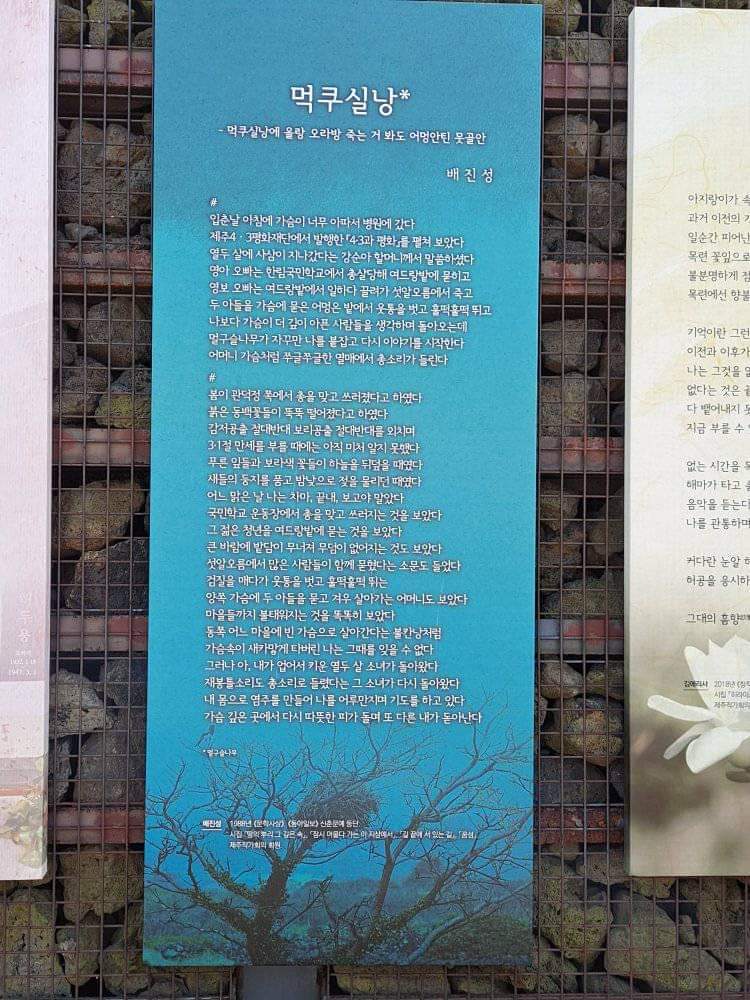 먹쿠실낭*
- 먹쿠실낭에 올랑 오라방 죽는 거 봐도 어멍안틴 못골안
배진성
#
입춘날 아침에 가슴이 너무 아파서 병원에 갔다
제주4·3평화재단에서 발행한 『4·3과 평화』를 펼쳐 보았다
열두 살에 사삼이 지나갔다는 강순아 할머니께서 말씀하셨다
영아 오빠는 한림국민학교에서 총살당해 여드랑밭에 묻히고
영보 오빠는 여드랑밭에서 일하다 끌려가 섯알오름에서 죽고
두 아들을 가슴에 묻은 어멍은 밭에서 웃통을 벗고 훌떡훌떡 뛰고
나보다 가슴이 더 깊이 아픈 사람들을 생각하며 돌아오는데
멀구슬나무가 자꾸만 나를 붙잡고 다시 이야기를 시작한다
어머니 가슴처럼 쭈글쭈글한 열매에서 총소리가 들린다
#
봄이 관덕정 쪽에서 총을 맞고 쓰러졌다고 하였다
붉은 동백꽃들이 뚝뚝 떨어졌다고 하였다
감저공출 절대반대 보리공출 절대반대를 외치며
3·1절 만세를 부를 때에는 아직 미처 알지 못했다
푸른 잎들과 보라색 꽃들이 하늘을 뒤덮을 때였다
새들의 둥지를 품고 밤낮으로 젖을 물리던 때였다
어느 맑은 날 나는 차마, 끝내, 보고야 말았다
국민학교 운동장에서 총을 맞고 쓰러지는 것을 보았다
그 젊은 청년을 여드랑밭에 묻는 것을 보았다
큰 바람에 밭담이 무너져 무덤이 없어지는 것도 보았다
섯알오름에서 많은 사람들이 함께 묻혔다는 소문도 들었다
검질을 매다가 웃통을 벗고 훌떡훌떡 뛰는
양쪽 가슴에 두 아들을 묻고 겨우 살아가는 어머니도 보았다
마을들까지 불태워지는 것을 똑똑히 보았다
동쪽 어느 마을에 빈 가슴으로 살아간다는 불칸낭처럼
가슴속이 새카맣게 타버린 나는 그때를 잊을 수 없다
그러나 아, 내가 업어서 키운 열두 살 소녀가 돌아왔다
재봉틀소리도 총소리로 들렸다는 그 소녀가 다시 돌아왔다
내 몸으로 염주를 만들어 나를 어루만지며 기도를 하고 있다
가슴 깊은 곳에서 다시 따뜻한 피가 돌며 또 다른 내가 돋아난다
*멀구슬나무
배진성 1988년 《문학사상》 《동아일보》 신춘문예 등단
시집 『땅의 뿌리 그 깊은 속』, 『잠시 머물다 가는 이 지상에서』, 『길 끝에 서 있는 길』, 『꿈섬』
제주작가회의 회원
아지랑이가 속
과거 이전의
일순간 피어난
목련 꽃잎으로
불분명하게 점
목련에선 향불
기억이란 그런
이전과 이후가
나는 그것을
없다는 것은
다 뱉어내지 못
지금 부를 수
없는 시간을
해마가 타고
음악을 듣는다
나를 관통하며
커다란 눈알
허공을 응시하
그대의 흠향
김애리사 2018년
제주작가회의